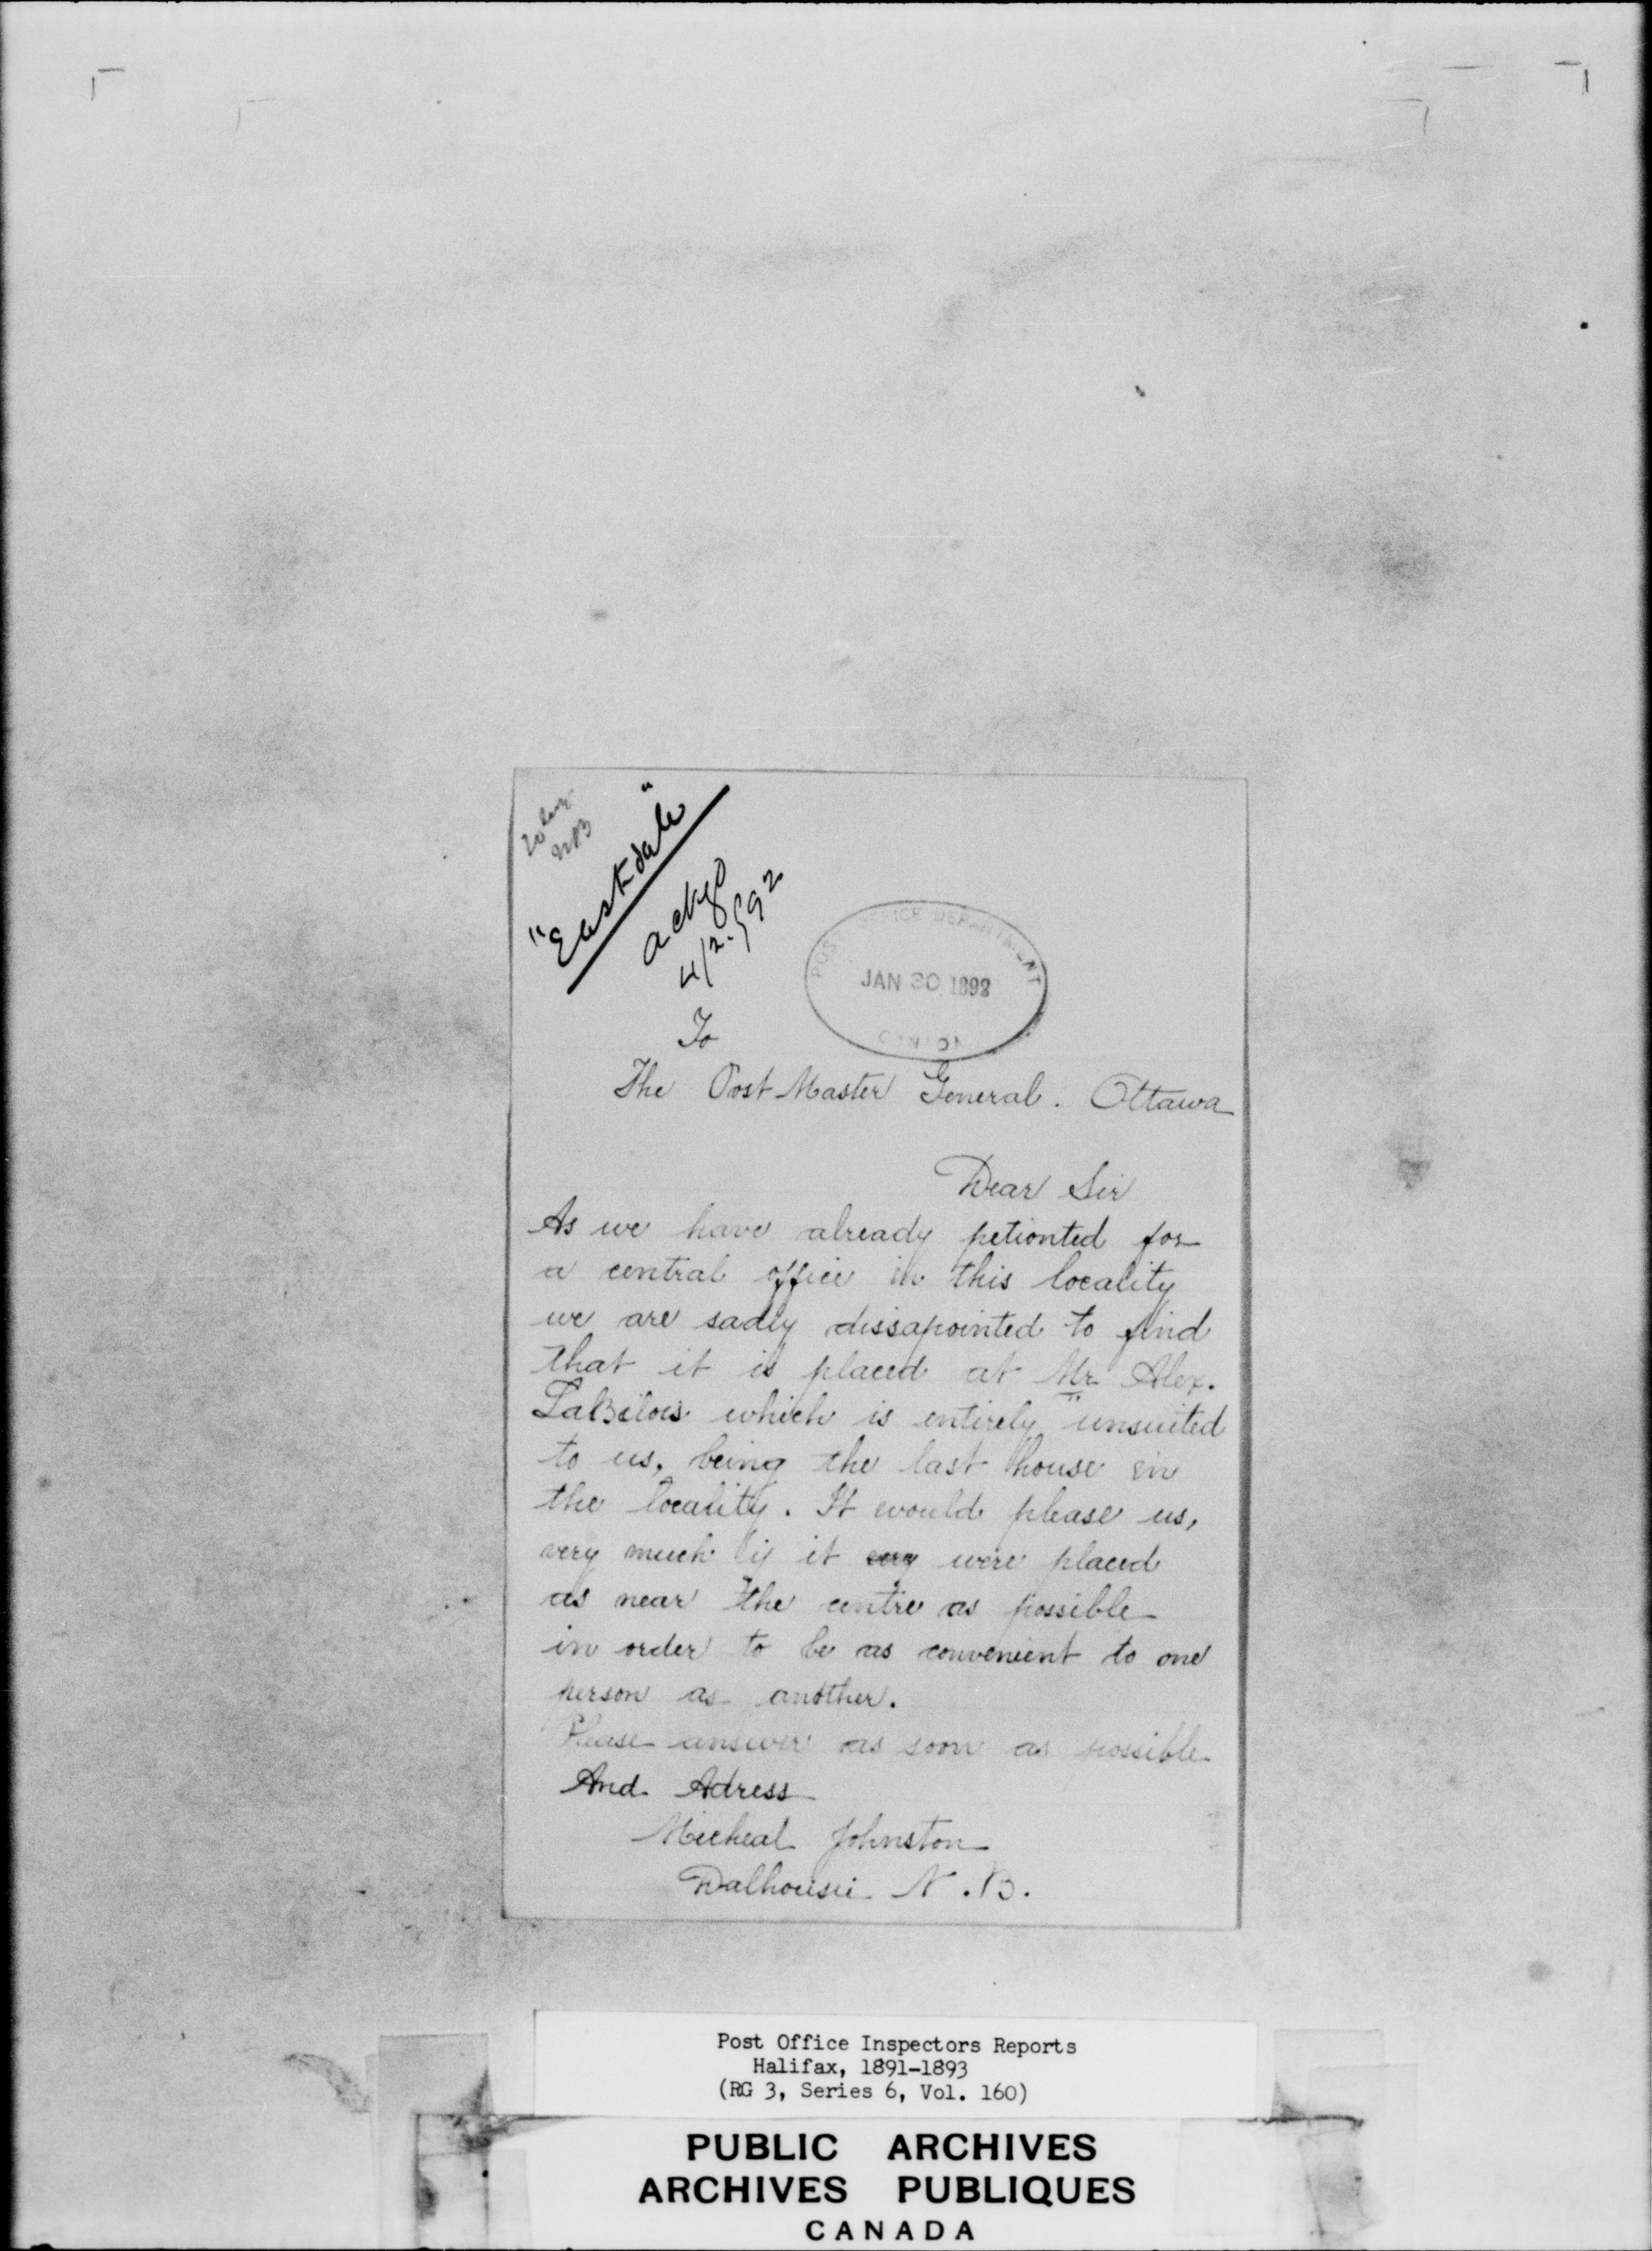 "Eastdale"
ackgd
4/2/92
POST OFFICE DEPARTMENT
JAN 30 1892
CANADA
To
The Post Master General. Ottawa
Dear Sir
As we have already petionted for
a central office in this locality
we are sadly dissapointed to find
that it is placed at Mr. Alex.
LaBilois which is entirely unsuited
to us, being the last house in
the locality. It would please us,
very much if it were placed
as near the centre as possible
in order to be as convenient to one
person as another.
Please answer as soon as possible
And Adress
Micheal Johnston
Dalhousie N.B.
Post Office Inspectors Reports
Halifax, 1891-1893
(RG 3, Series 6, Vol. 160)
PUBLIC ARCHIVES
ARCHIVES PUBLIQUES
CANADA